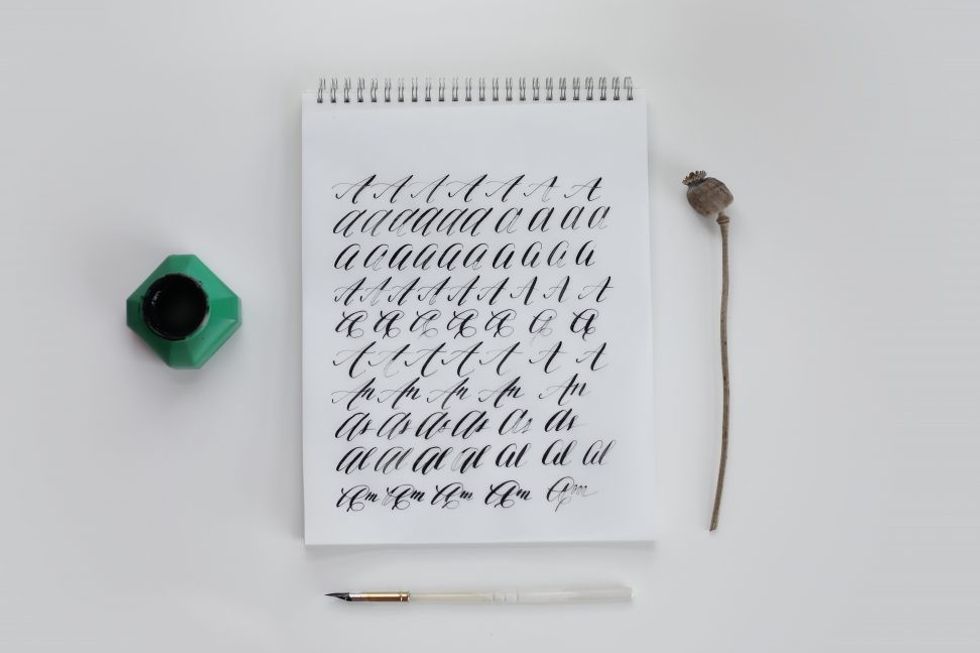 A A A A A A A
a a a a a a a a a a a
a a a a a a a a a a
A A A A A A A A A
A A A A A A A
A A A A A A A
An An An An An
As As As As As As
al al al al al al al
Am Am Am Am Am